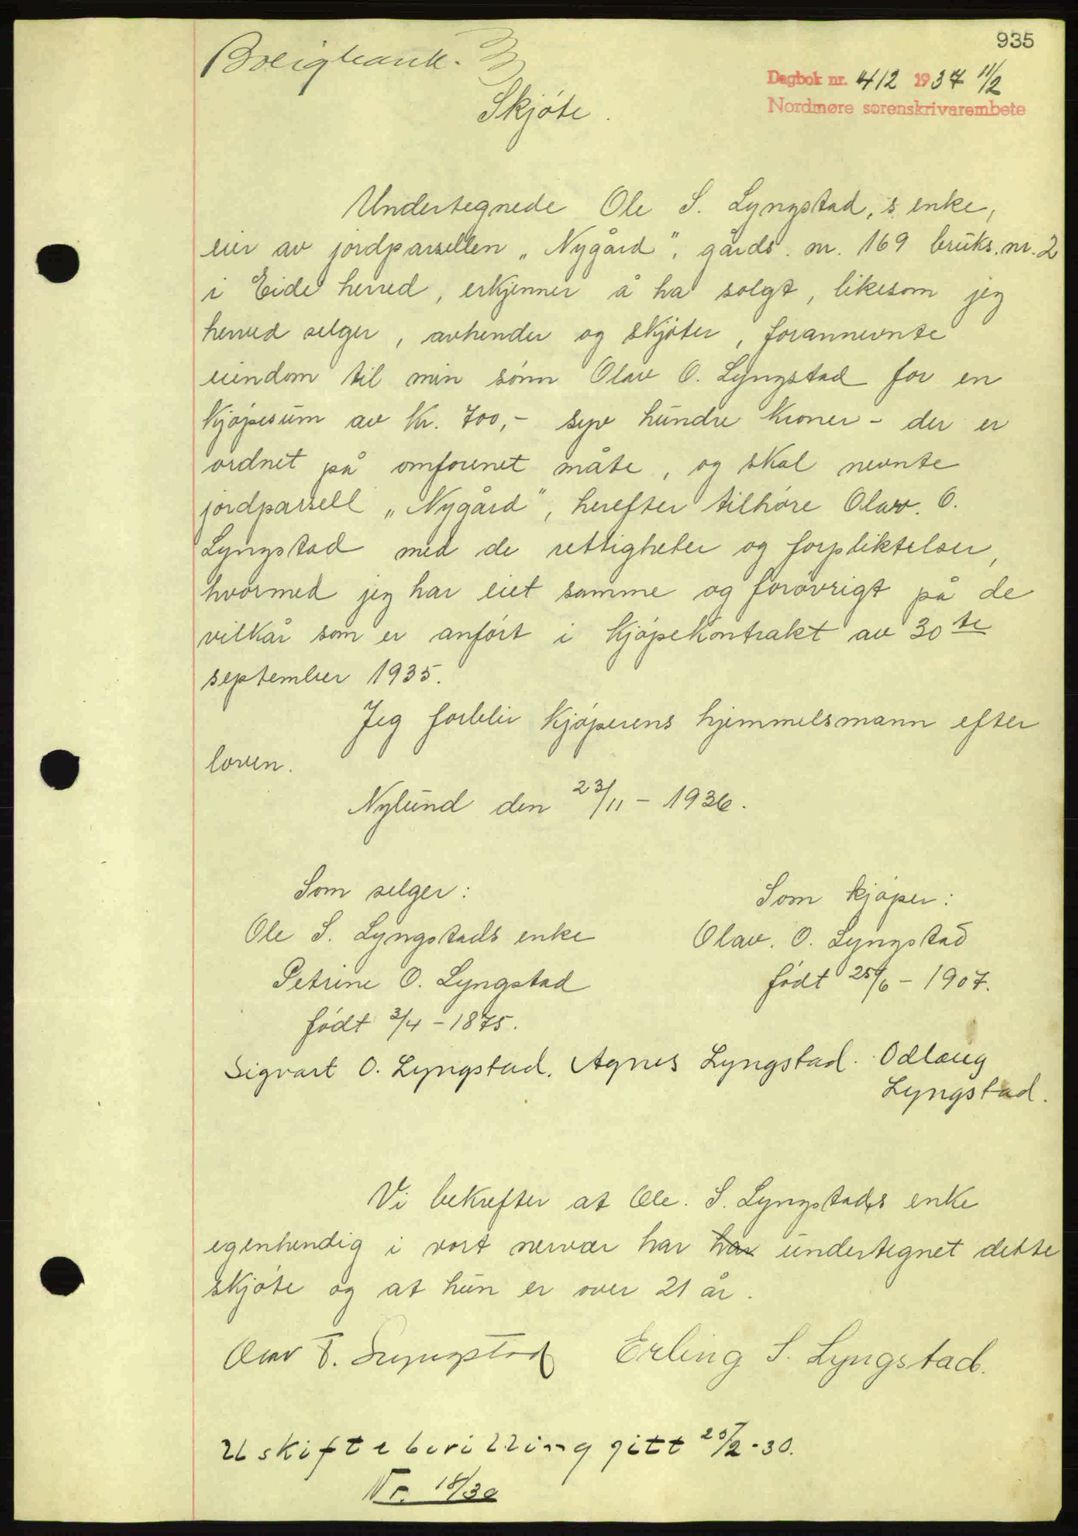 935
Boligbank.
Dagbok nr. 412 1937 11/2
Nordmøre sorenskrivarembete
Skjøte.
Undertegnede Ole S. Lyngstad,s enke,
eier av jordparsellen „Nygård", gårds. nr. 169 bruks. nr. 2
i Eide herred, erkjenner å ha solgt, likesom jeg
herved selger, avhender og skjøter, forannevnte
eiendom til min sønn Olav O. Lyngstad for en
kjøpesum av kr. 700,- syv hundre kroner - der er
ordnet på omforenet måte, og skal nevnte
jordparsell „Nygård", herefter tilhøre Olav. O.
Lyngstad med de rettigheter og forpliktelser,
hvormed jeg har eiet samme og forøvrigt på de
vilkår som er anført i kjøpekontrakt av 30te
september 1935.
Jeg forblir kjøperens hjemmelsmann efter
loven.
Nylund den 23/11 - 1936.
Som selger:
Ole S. Lyngstads enke
Petrine O. Lyngstad
født 3/4 - 1875.
Som kjøper:
Olav. O. Lyngstad
født 25/6 - 1907.
Sigvart O. Lyngstad. Agnes Lyngstad. Odlaug
Lyngstad.
Vi bekrefter at Ole. S. Lyngstads enke
egenhendig i vort nervær har har undertegnet dette
skjøte og at hun er over 21 år.
Olav T. Lyngstad Erling S. Lyngstad.
Uskiftebevilling gitt 25/2-30.
Nr. 18/30